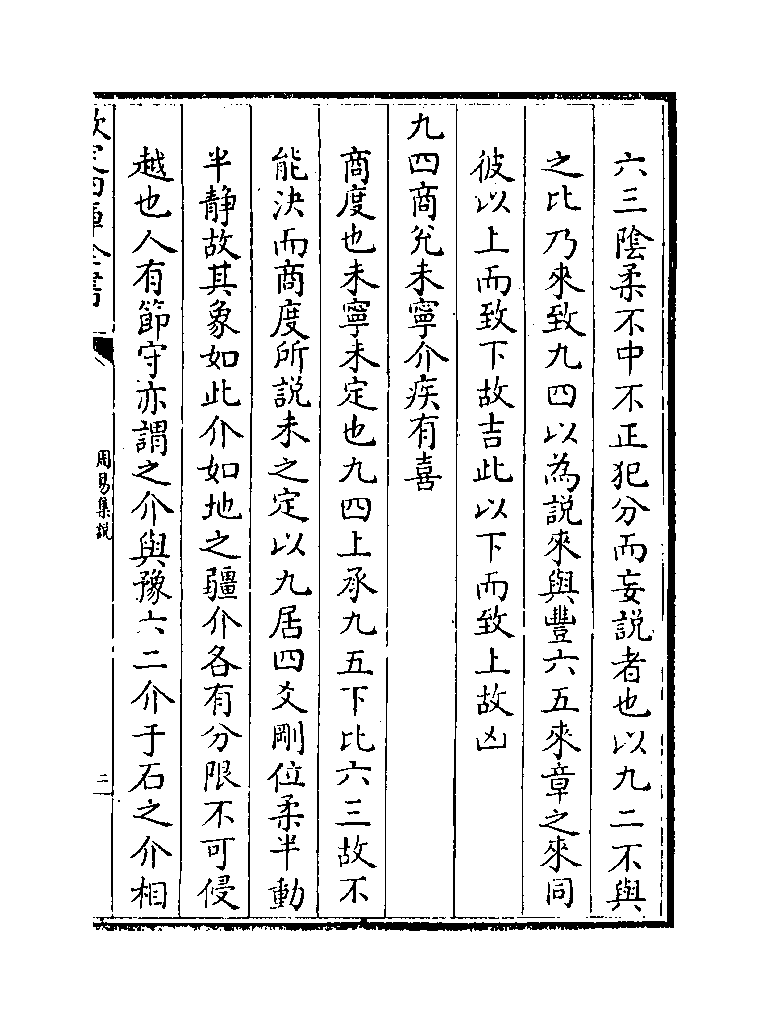 六三陰柔不中不正犯分而妄説者也以九二不與
之比乃來致九四以為説來與豐六五來章之來同
彼以上而致下故吉此以下而致上故凶
九四商兊未寧介疾有喜
商度也未寧未定也九四上承九五下比六三故不
能決而商度所説未之定以九居四爻剛位柔半動
半静故其象如此介如地之疆介各有分限不可侵
越也人有節守亦謂之介與豫六二介于石之介相
周易集説
三